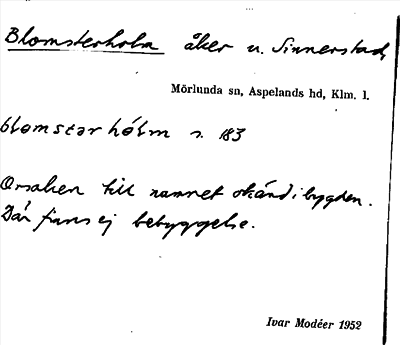 Blomsterholm åker u. Sinnerstad,
Mörlunda sn, Aspelands hd, Klm. l.
blomstər hólm s. 183
Orsaken till namnet okänd i bygden.
Där finns ej bebyggelse.
Ivar Modéer 1952